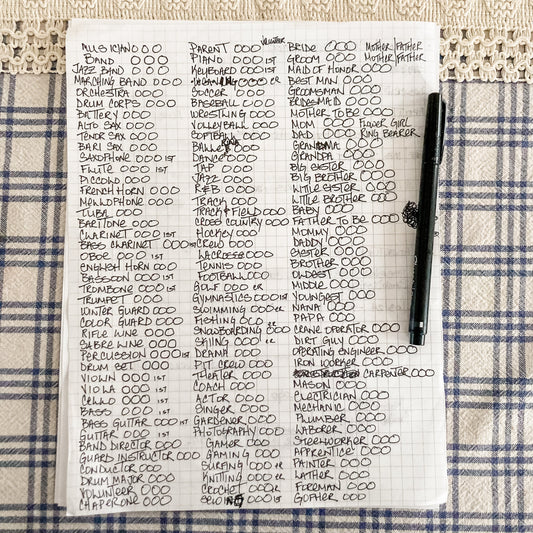 MUSICIAN OOO
BAND OOO
JAZZ BAND OOO
MARCHING BAND OOO
ORCHESTRA OOO
DRUM CORPS OOO
BATTERY OOO
ALTO SAX OOO
TENOR SAX OOO
BARI SAX OOO
SAXOPHONE OOO IST
FLUTE OOO IST
PICCOLO OOO
FRENCH HORN OOO
MELLOPHONE OOO
TUBA OOO
BARITONE OOO
CLARINET OOO IST
BASS CLARINET OOO IST
OBOE OOO IST
ENGLISH HORN OOO
BASSOON OOO IST
TROMBONE OOO IST
TRUMPET OOO
WINTER GUARD OOO
COLOR GUARD OOO
RIFLE LINE OOO
SABRE LINE OOO
PERCUSSION OOO IST
DRUM SET OOO
VIOLIN OOO IST
VIOLA OOO IST
CELLO OOO IST
BASS OOO IST
BASS GUITAR OOO IST
GUITAR OOO IST
BAND DIRECTOR OOO
GUARD INSTRUCTOR OOO
CONDUCTOR OOO
DRUM MAJOR OOO
VOLUNTEER OOO
CHAPERONE OOO
PARENT OOO
PIANO OOO IST
KEYBOARD OOO IST
OOO ER
SOCCER OOO
BASEBALL OOO
WRESTLING OOO
VOLLEYBALL OOO
SOFTBALL OOO
BALLET OOO
DANCE OOO
TAP OOO
JAZZ OOO
R&B OOO
TRACK OOO
TRACK & FIELD OOO
CROSS COUNTRY OOO
HOCKEY OOO
CREW OOO
LACROSSE OOO
TENNIS OOO
FOOTBALL OOO
GOLF OOO ER
GYMNASTICS OOO IST
SWIMMING OOO ER
FISHING OOO
SNOWBOARDING OOO ER
SKIING OOO ER
DRAMA OOO
PIT CREW OOO
THEATER OOO
COACH OOO
ACTOR OOO
SINGER OOO
GARDENER OOO
PHOTOGRAPHY OOO
GAMER OOO
GAMING OOO
SURFING OOO ER
KNITTING OOO ER
CROCHET OOO ER
SEWING OOO IST
BRIDE OOO MOTHER/FATHER
GROOM OOO MOTHER/FATHER
MAID OF HONOR OOO
BEST MAN OOO
GROOMSMAN OOO
BRIDESMAID OOO
MOTHER TO BE OOO
MOM OOO FLOWER GIRL
DAD OOO RING BEARER
GRANDMA OOO
GRANDPA OOO
BIG SISTER OOO
BIG BROTHER OOO
LITTLE SISTER OOO
LITTLE BROTHER OOO
BABY OOO
FATHER TO BE OOO
MOMMY OOO
DADDY OOO
SISTER OOO
BROTHER OOO
OLDEST OOO
MIDDLE OOO
YOUNGEST OOO
NANA OOO
PAPPA OOO
CRANE OPERATOR OOO
DIRT GUY OOO
OPERATING ENGINEER OOO
IRON WORKER OOO
CARPENTER OOO
MASON OOO
ELECTRICIAN OOO
MECHANIC OOO
PLUMBER OOO
LABORER OOO
STEELWORKER OOO
APPRENTICE OOO
PAINTER OOO
LATHER OOO
FOREMAN OOO
GOPHER OOO